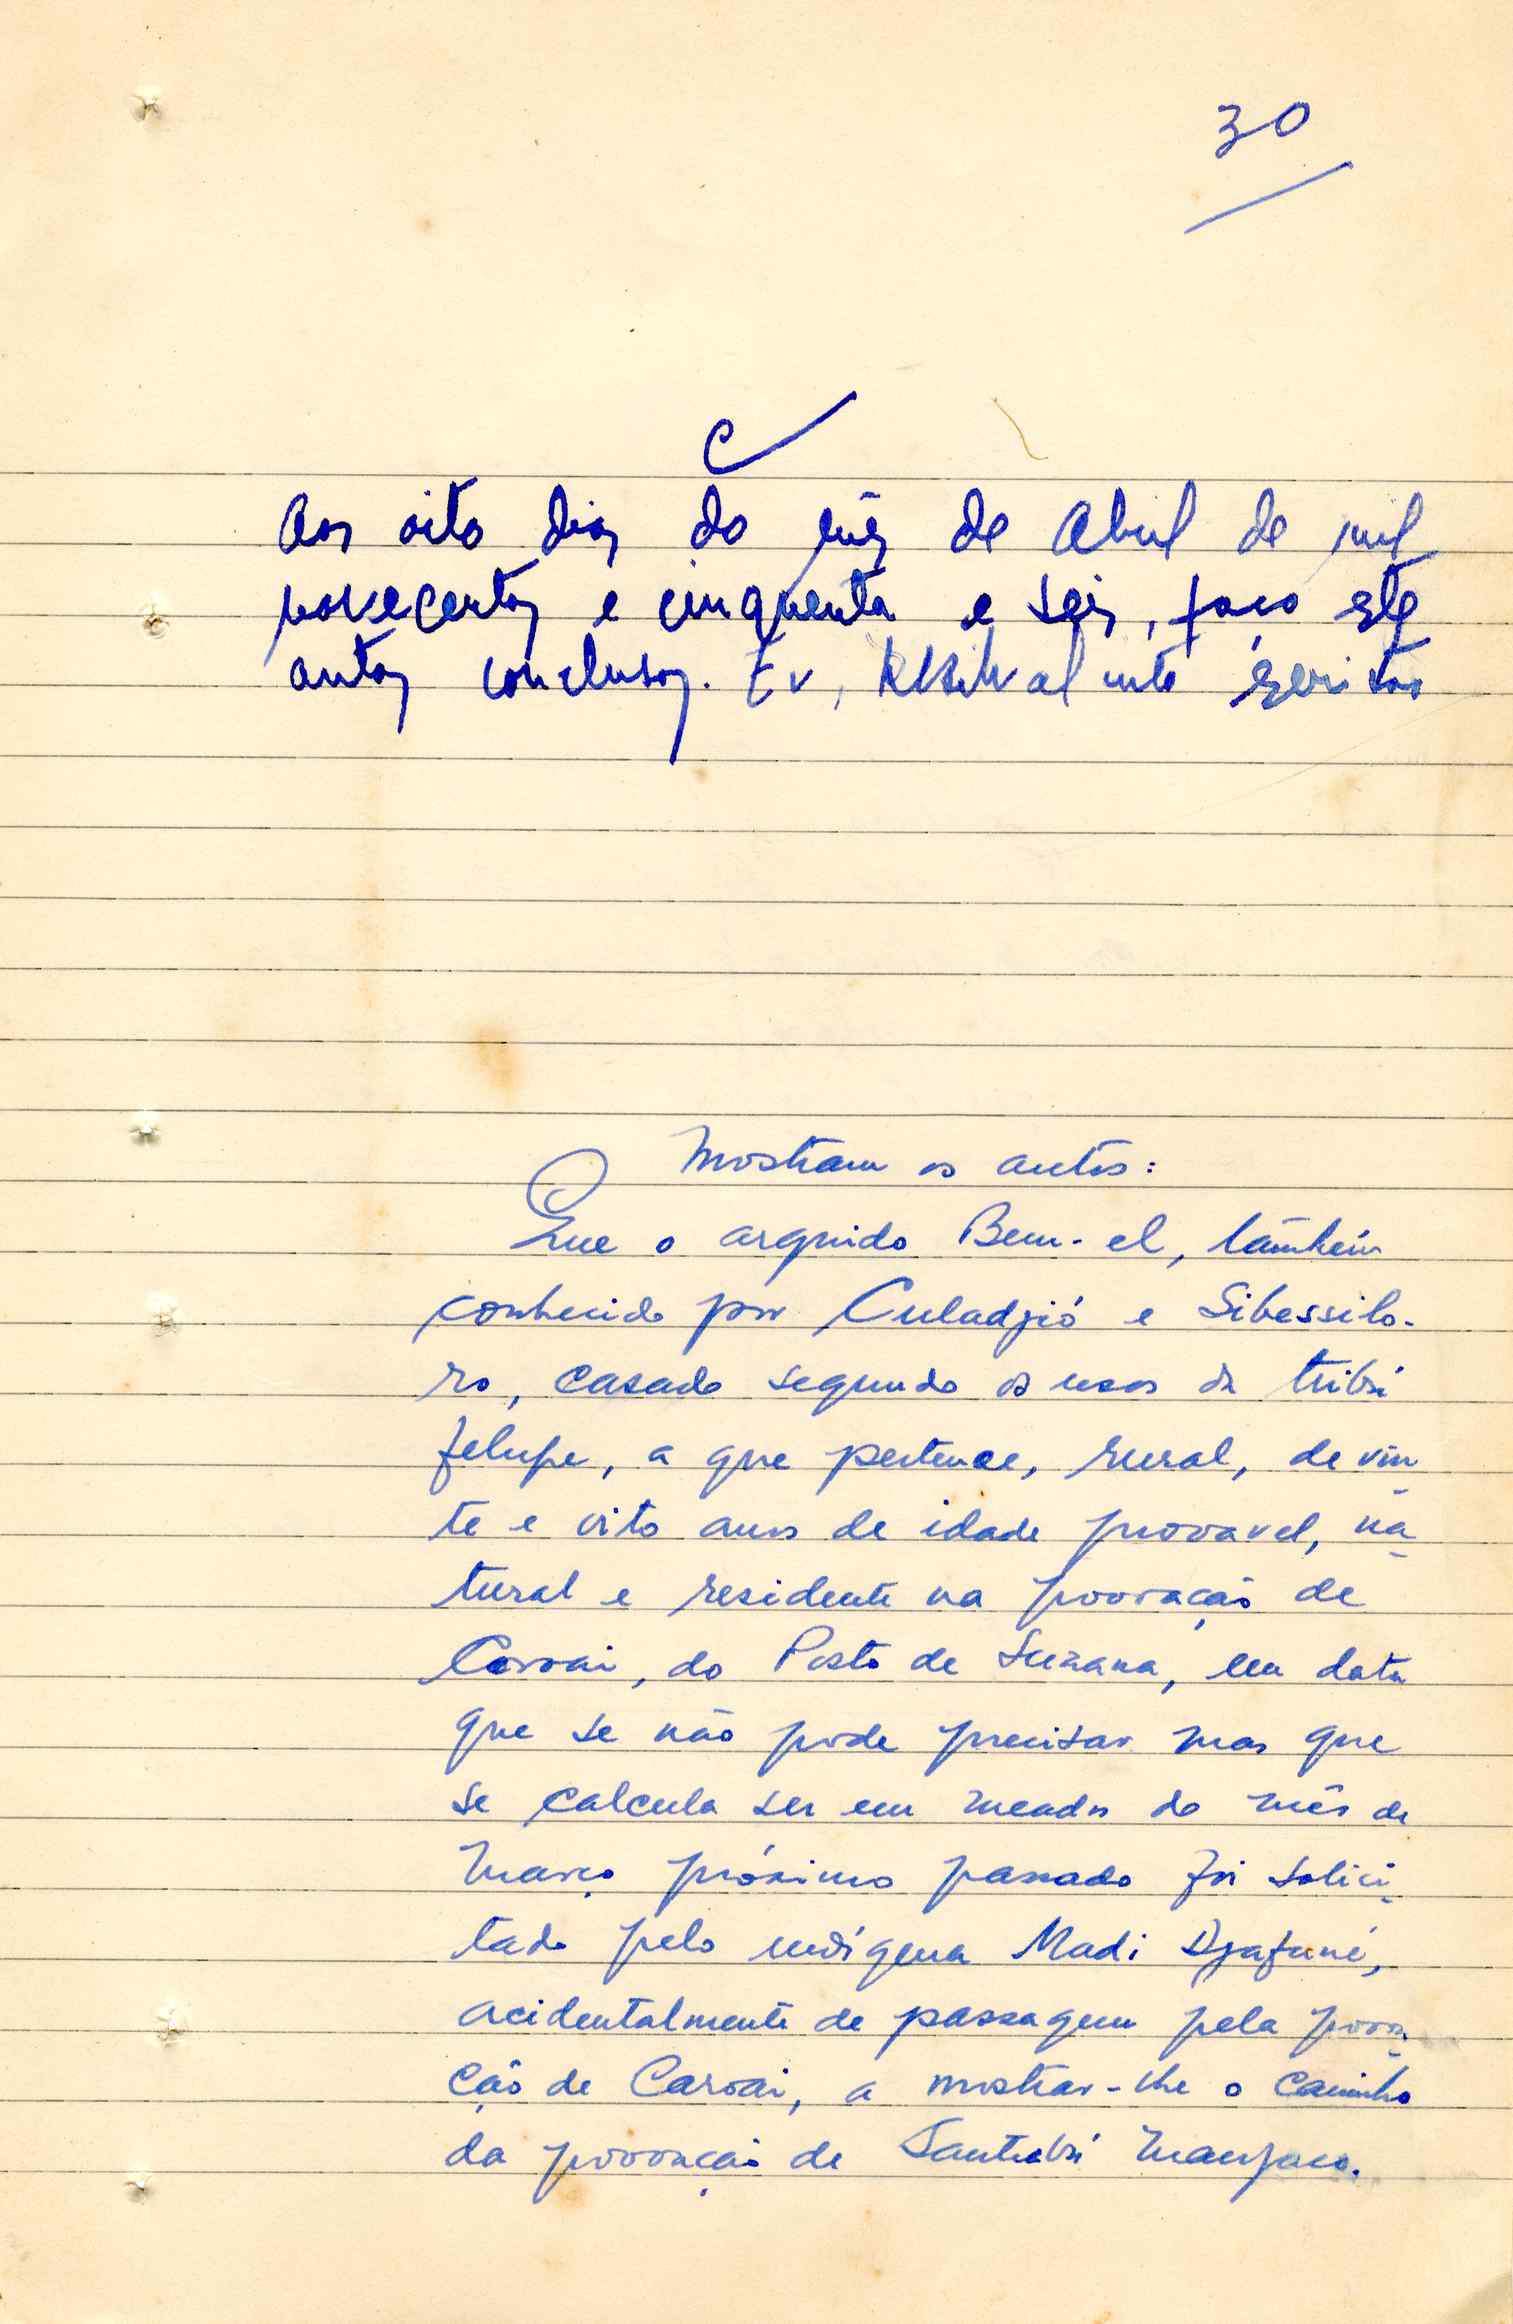 30
C
Aos oito dias do mês de Abril de mil
novecentos e cinquenta e seis, faço este
autos conclusos. Eu, escrivão
Mostram os autos:
Que o arguido Bem-el, também
conhecido por Culadjió e Sibessilo-
ro, casado segundo os usos da tribu
felupe, a que pertence, rural, de vin
te e oito anos de idade provavel, na
tural e residente na povoação de
Carvai, do Posto de Suzana, em data
que se não pode precisar mas que
se calcula ser em meados do mês de
Março próximo passado foi solici
tado pelo indígena Madi Djafuné,
acidentalmente de passagem pela povoa
ção de Carvai, a mostrar-lhe o caminho
da povoação de Santubú Manjaco.